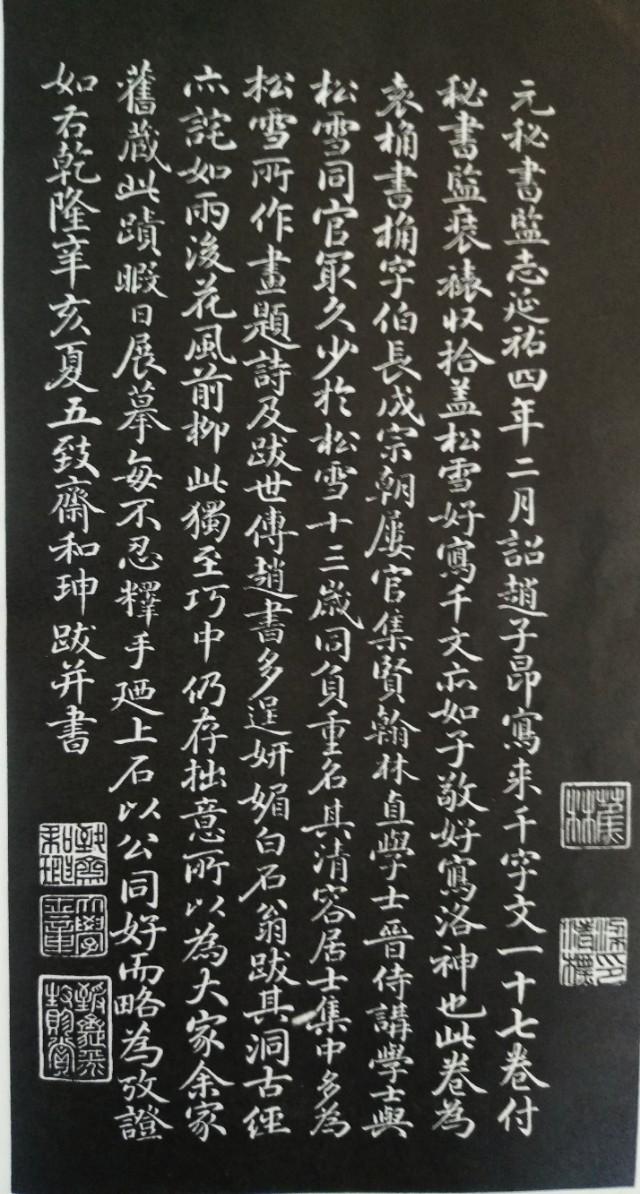 元秘書監志延祐四年二月詔趙子昂寫来千字文一十七卷付
秘書監裒裱収拾盖松雪好寫千文亦如子敬好寫洛神也此卷為
袁桷書桷字伯長成宗朝屢官集賢翰林直學士晉侍講學士與
松雪同官冣久少於松雪十三歲同負重名其清容居士集中多為
松雪所作畫題詩及跋世傳趙書多逞妍媚白石翁跋其洞古經
亦詫如雨後花風前柳此獨至巧中仍存拙意所以為大家余家
舊蔵此蹟暇日展摹每不忍釋手廼上石以公同好而略為攷證
如右乾隆辛亥夏五致齋和珅跋并書
致齋和珅
蕉林